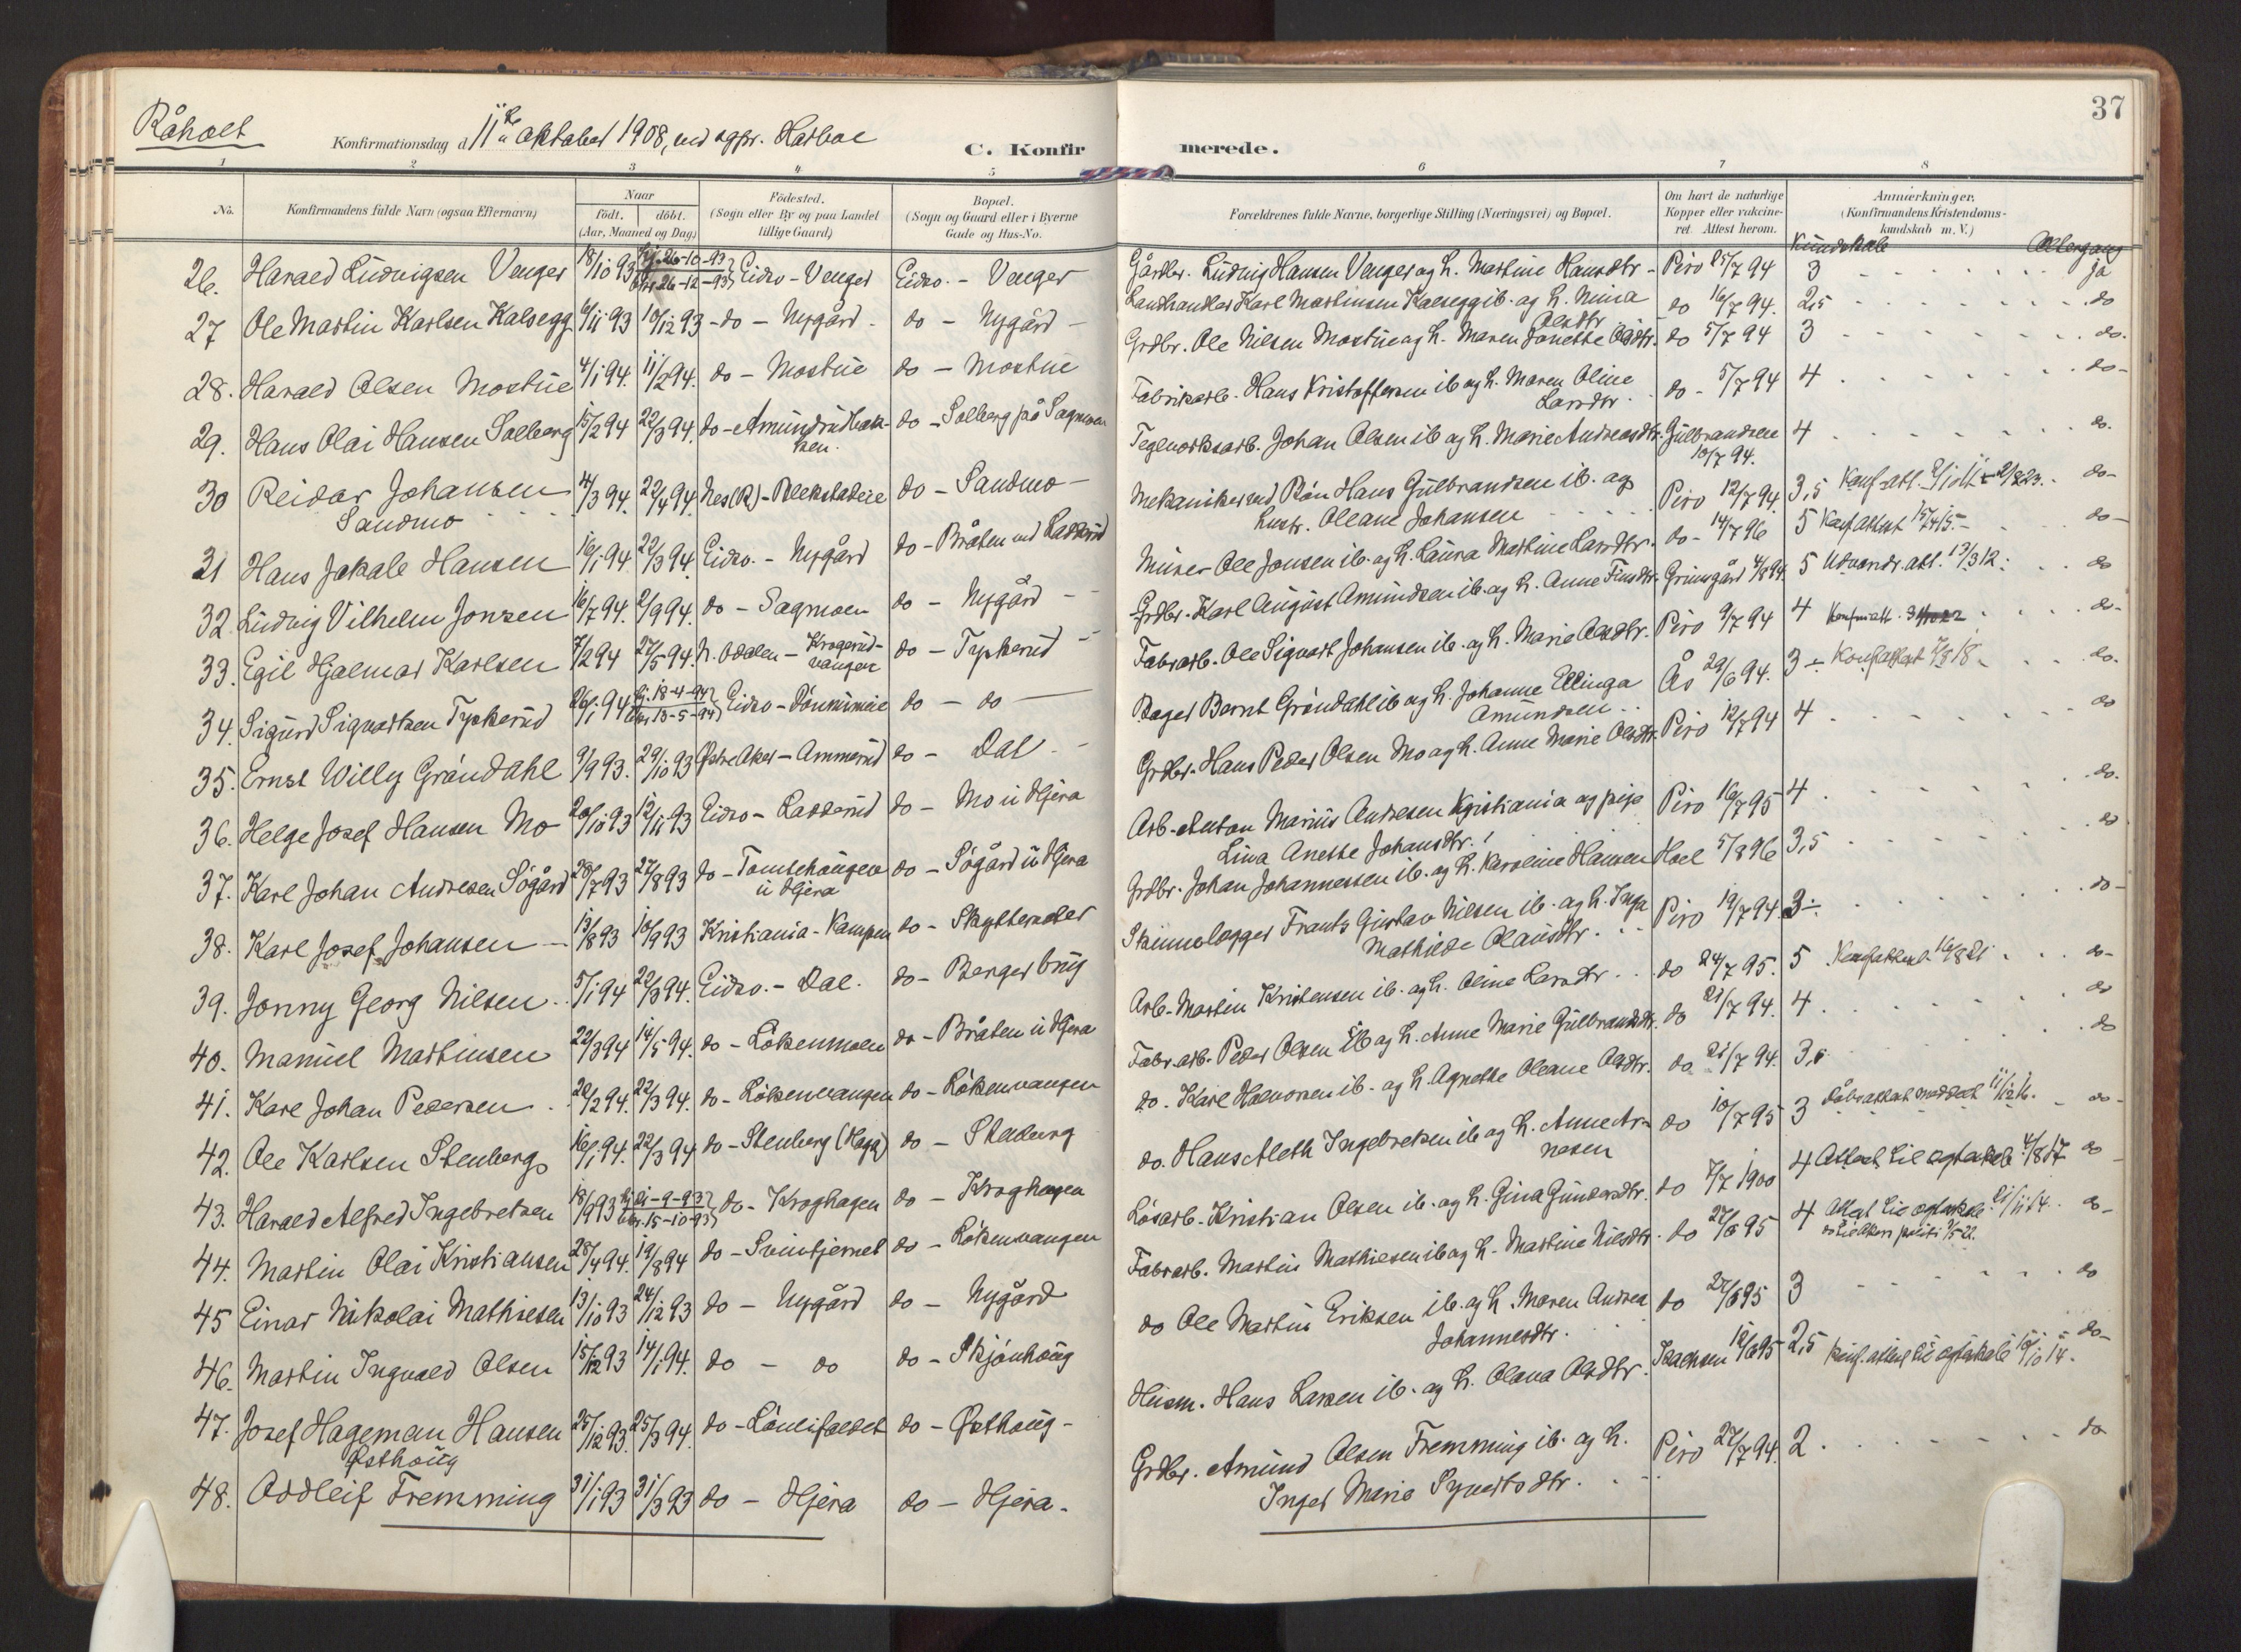 37
Råholt
Konfirmationsdag d. 11te oktober 1908, ved sgpr. Harboe
C. Konfirmerede.
1 2 3 4 5 6 7 8
No.
Konfirmandens fulde Navn (ogsaa Efternavn)
Naar
födt. döbt.
(Aar, Maaned og Dag)
Födested.
(Sogn eller By og paa Landet
tillige Gaard)
Bopæl.
(Sogn og Gaard eller i Byerne
Gade og Hus-No.
Forældrenes fulde Navne, borgerlige Stilling (Næringsvei) og Bopæl.
Om havt de naturlige
Kopper eller vakcine-
ret. Attest herom.
Anmærkninger.
(Konfirmandens Kristendoms-
kundskab m. V.)
Kundskab Altergang
26. Harald Ludvigsen Venger 18/10 93 Hj. 26-10-93 Kirk. 26-12-93 Eidsv. - Venger Eidsv. - Venger Gårdbr. Ludvig Hansen Venger og h. Martine Hansdtr - Piro 25/7 94 3 ja
27 Ole Martin Karlsen Kalsegg 6/11 93 10/12 93 - do - Nygård - do - Nygård - Landhandler Karl Martinsen Kalsegg ib. og h. Mina
Olsdtr do 16/7 94. 2,5 do
28. Harald Olsen Mostue 4/1 94. 11/2 94. do - Mostue do - Mostue Grdbr. Ole Nilsen Mostue og h. Maren Jonette Olsdtr. do 5/7 94 3 do.
29. Hans Olai Hansen Solberg 15/2 94 22/3 94. do - Amundrudbak-
ken. do - Solberg på Sagmoen Fabrikarb. Hans Kristoffersen ib og h. Maren Oline
Larsdtr. do - 5/7 94 4 do -
30 Reidar Johansen
Sandmo 14/3 94. 22/4 94. Nes (R) - Blekstadeie do - Sandmo - Teglverksarb. Johan Olsen ib og h. Marie Andreasdtr. Gulbrandsen
10/7 94. 4 do.
31 Hans Jakob Hansen 16/1 94. 22/3 94. Eidsv. - Nygård do - Bråten ved Ladderud Mekaniker ved Rön Hans Gulbrandsen ib. og
hustr. Oleane Johansen Piro 12/7 94. 3,5 do -
32. Ludvig Vilhelm Jonsen 16/7 94. 2/9 94. do - Sagmoen do - Nygård - Murer Ole Jonsen ib. og h. Laura Martine Larsdtr. do - 14/7 96 5 Konf. attest 15/4 15. - do -
33. Egil Hjalmar Karlsen 7/2 94 27/5 94. N. Odalen - Krogerud-
vangen do - Tyskerud - Grdbr. Karl August Amundsen ib. og h. Anne Finsdtr. Grimsgård 4/8 94. 5 Udvandr. att. 13/3 12. do
34. Sigurd Sigvartsen Tyskerud 26/1 94 Hj. 18-4-94 Kirk. 13-5-94 Eidsv - Dönnumeie do - do - Fabrarb. Ole Sigvart Johansen ib. og h. Marie Olsdtr. Piro 9/7 94 4 do -
35. Ernst Willy Gröndahl 9/9 93. 29/10 93 Østre Aker - Ammerud do - Dal - Bager Bernt Gröndahl ib og h. Johanne Ellinga
Amundsen Ås 29/6 94. 3 ÷ Konf. attest do.
36. Helge Josef Hansen Mo 20/10 93 12/11 93 Eidsv - Ladderud do - Mo u Hjera Grdbr. Hans Peder Olsen Mo og h. Anne Marie Olsdtr. Piro 12/7 94 4 do
37. Karl Johan Andresen Sögård 28/7 93 27/8 93 do - Tomtehaugen
u Hjera do - Sögård u Hjera Arb. Anton Marius Andresen Kristiania og pige
Lina Anette Johansdtr.! Piro 16/7 95 4 do.
38. Karl Josef Johansen - 13/8 93 10/9 93 Kristiania - Kampen do - Skytterader Grdbr. Johan Johannessen ib. og h. Karoline Hansen Hoel 5/8 96 3,5 do
39. Jonny Georg Nilsen 5/1 94 22/3 94. Eidsv. - Dal. do - Berger brug Skinnelægger Frants Gustav Nilsen ib. og h. Inga
Mathilde Olausdtr. Piro 19/7 94. 3 ÷. do -
40. Manuel Martinsen 22/3 94 14/5 94. do - Lökenmoen do - Bråten u Hjera Arb. Martin Kristensen ib. og h. Oline Larsdtr. do 24/7 95. 5 Konf. attest 16/8 21 do -
41. Karl Johan Pedersen 20/2 94. 22/3 94. do - Lökenvangen do - Lökenvangen Fabr. arb. Peder Olsen ib og h. Anne Marie Gulbrandsdtr. do 21/7 94. 4 do
42. Ole Karlsen Stenberg 16/1 94. 22/3 94 do - Stenberg (Haga) do - Stenberg do. Karl Halvorsen ib. og h. Agnethe Oleane Olsdtr. do 21/7 94. 3,5 do
43. Harald Alfred Ingebretsen 18/9 93 Hj. 21-9-93 Kirk. 15-10-93 do - Kroghagen do - Kroghagen do. Hans Aleth Ingebretsen ib og h. Anne Ar-
nesen do 10/7 95 3 Dåbsattest meddelt 11/12 16. do -
44. Martin Olai Kristiansen 28/4 94. 19/8 94 do - Svintjernet do - Lökenvangen Lösarb. Kristian Olsen ib. og h. Gina Gundersdtr. do 7/7 1900 4 Attest til ægteskab 4/8 17 do -
45 Einar Nikolai Mathiesen 13/10 93 24/12 93 do - Nygård do - Nygård Fabrarb. Martin Mathiesen ib og h. Martine Nilsdtr. do 27/6 95 4 Attest til ægteskab 21/11 14. do -
46. Martin Ingvald Olsen 15/12 93 14/1 94. do - do do - Skjönhaug do Ole Martin Eriksen ib. og h. Maren Andrea
Johannesdtr. do 27/6 95 3 do
47. Josef Hageman Hansen
Østhaug 25/12 93. 25/3 94. do - Lönlifaldet do - Østhaug - Husm. Hans Larsen ib. og h. Olava Olsdtr. Isachsen 12/6 95 2,5 Konf. attest til ægteskab do -
48. Oddleif Fremming 31/1 93 31/3 93 do - Hjera do - Hjera. Grdbr. Amund Olsen Fremming ib. og h.
Inger Marie Syvertsdtr. Piro 27/7 94. 2. do